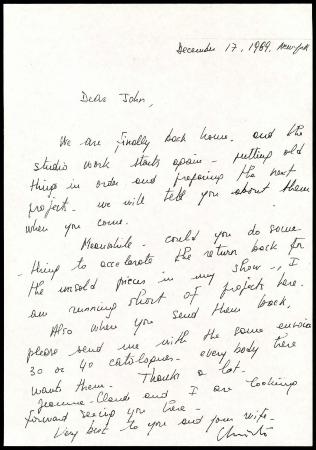 December 17, 1969, New-York
Dear John,
We are finally back home. and the
studio work starts again - putting old
things in order and preparing the next
project. we will tell you about them
when you come.
Meanwhile - could you do some-
thing to accelerate the return back for
the unsold pieces in my show -, I
am running short of projects here.
Also when you send them back,
please send me with the same envoice
30 or 40 catalogues - every body here
wants them. Thanks a lot -
Jeanne-Claude and I are looking
forward seeing you here -
Very best to you and your wife -
Christo